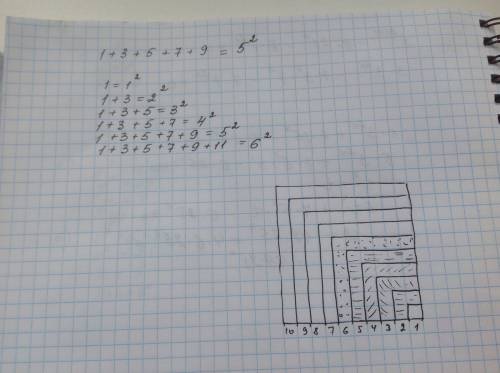 1 + 3 + 5 + 7 + 9 = 5²
1 = 1²
1 + 3 = 2²
1 + 3 + 5 = 3²
1 + 3 + 5 + 7 = 4²
1 + 3 + 5 + 7 + 9 = 5²
1 + 3 + 5 + 7 + 9 + 11 = 6²
10 9 8 7 6 5 4 3 2 1